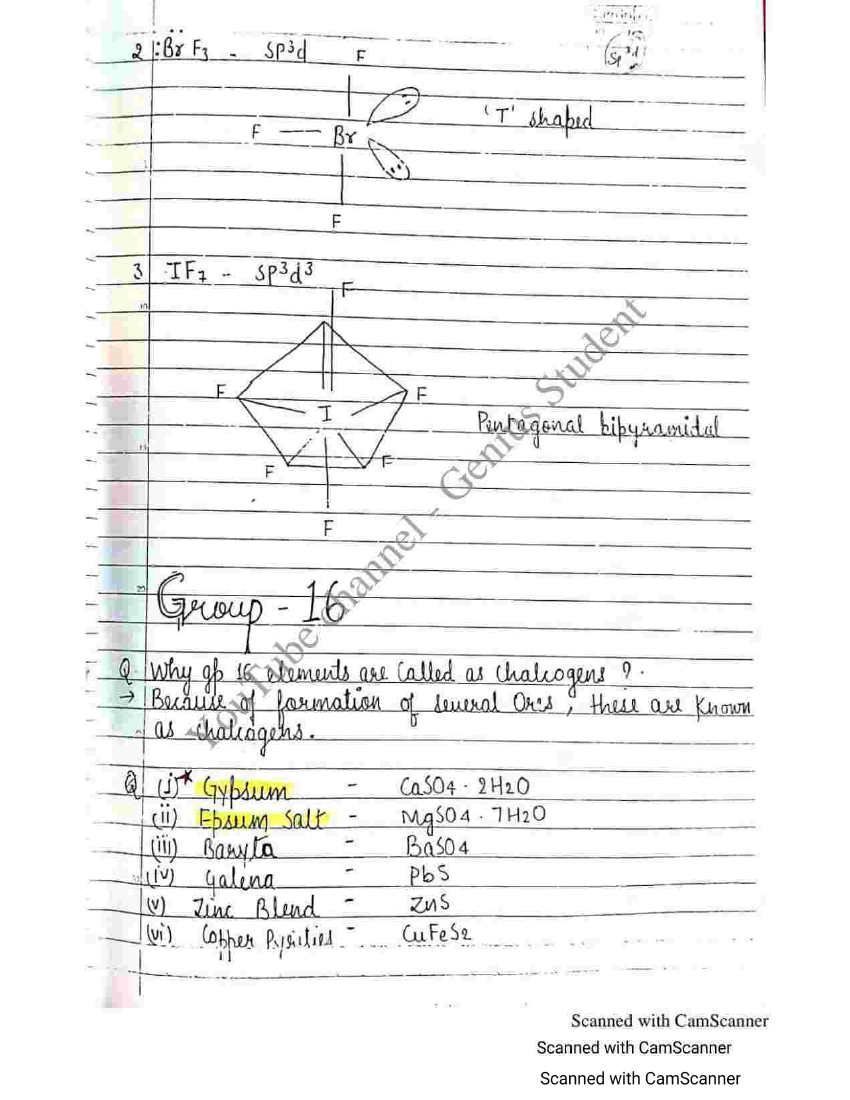 2 :B̈rF₃ - sp³d
F
F — Br
'T' shaped
F
3 IF₇ - sp³d³
F
F
F
I
Pentagonal bipyramidal
F
F
F
Group - 16
Q Why gp 16 elements are called as chalcogens ?
→ Because of formation of several Ores, these are known
as chalcogens.
Q (i)* Gypsum - CaSO4 · 2H2O
(ii) Epsum Salt - MgSO4 · 7H2O
(iii) Baryta - BaSO4
(iv) Galena - PbS
(v) Zinc Blend - ZnS
(vi) Copper Pyrities - CuFeS2
YouTube Channel - Genius Student
Scanned with CamScanner
Scanned with CamScanner
Scanned with CamScanner